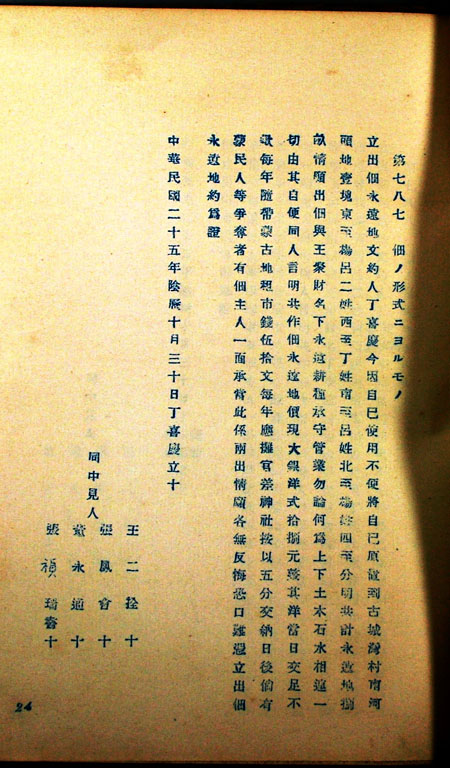 第七八七 佃ノ形式ニヨルモノ
立出佃永遠地文約人丁喜慶今因自已使用不便將自已原置到古城灣村南河
頭地壹塊東至楊呂二姓西至丁姓南至呂姓北至楊姓四至分明共計永遠地捌
畝情願出佃與王聚財名下永遠耕種承守管業勿論何爲上下土木石水相連一
切由其自便同人言明共作佃永遠地價現大銀洋弍拾捌元整其洋當日交足不
欠每年隨帶蒙古地租市錢伍拾文每年應攤官差神社按以五分交納日後倘有
蒙民人等爭奪者有佃主人一面承當此係兩出情願各無反悔恐口難憑立出佃
永遠地約爲證
中華民國二十五年陰曆十月三十日丁喜慶立十
同中見人
王二拴十
張鳳會十
董永通十
張禎瑞書十
24